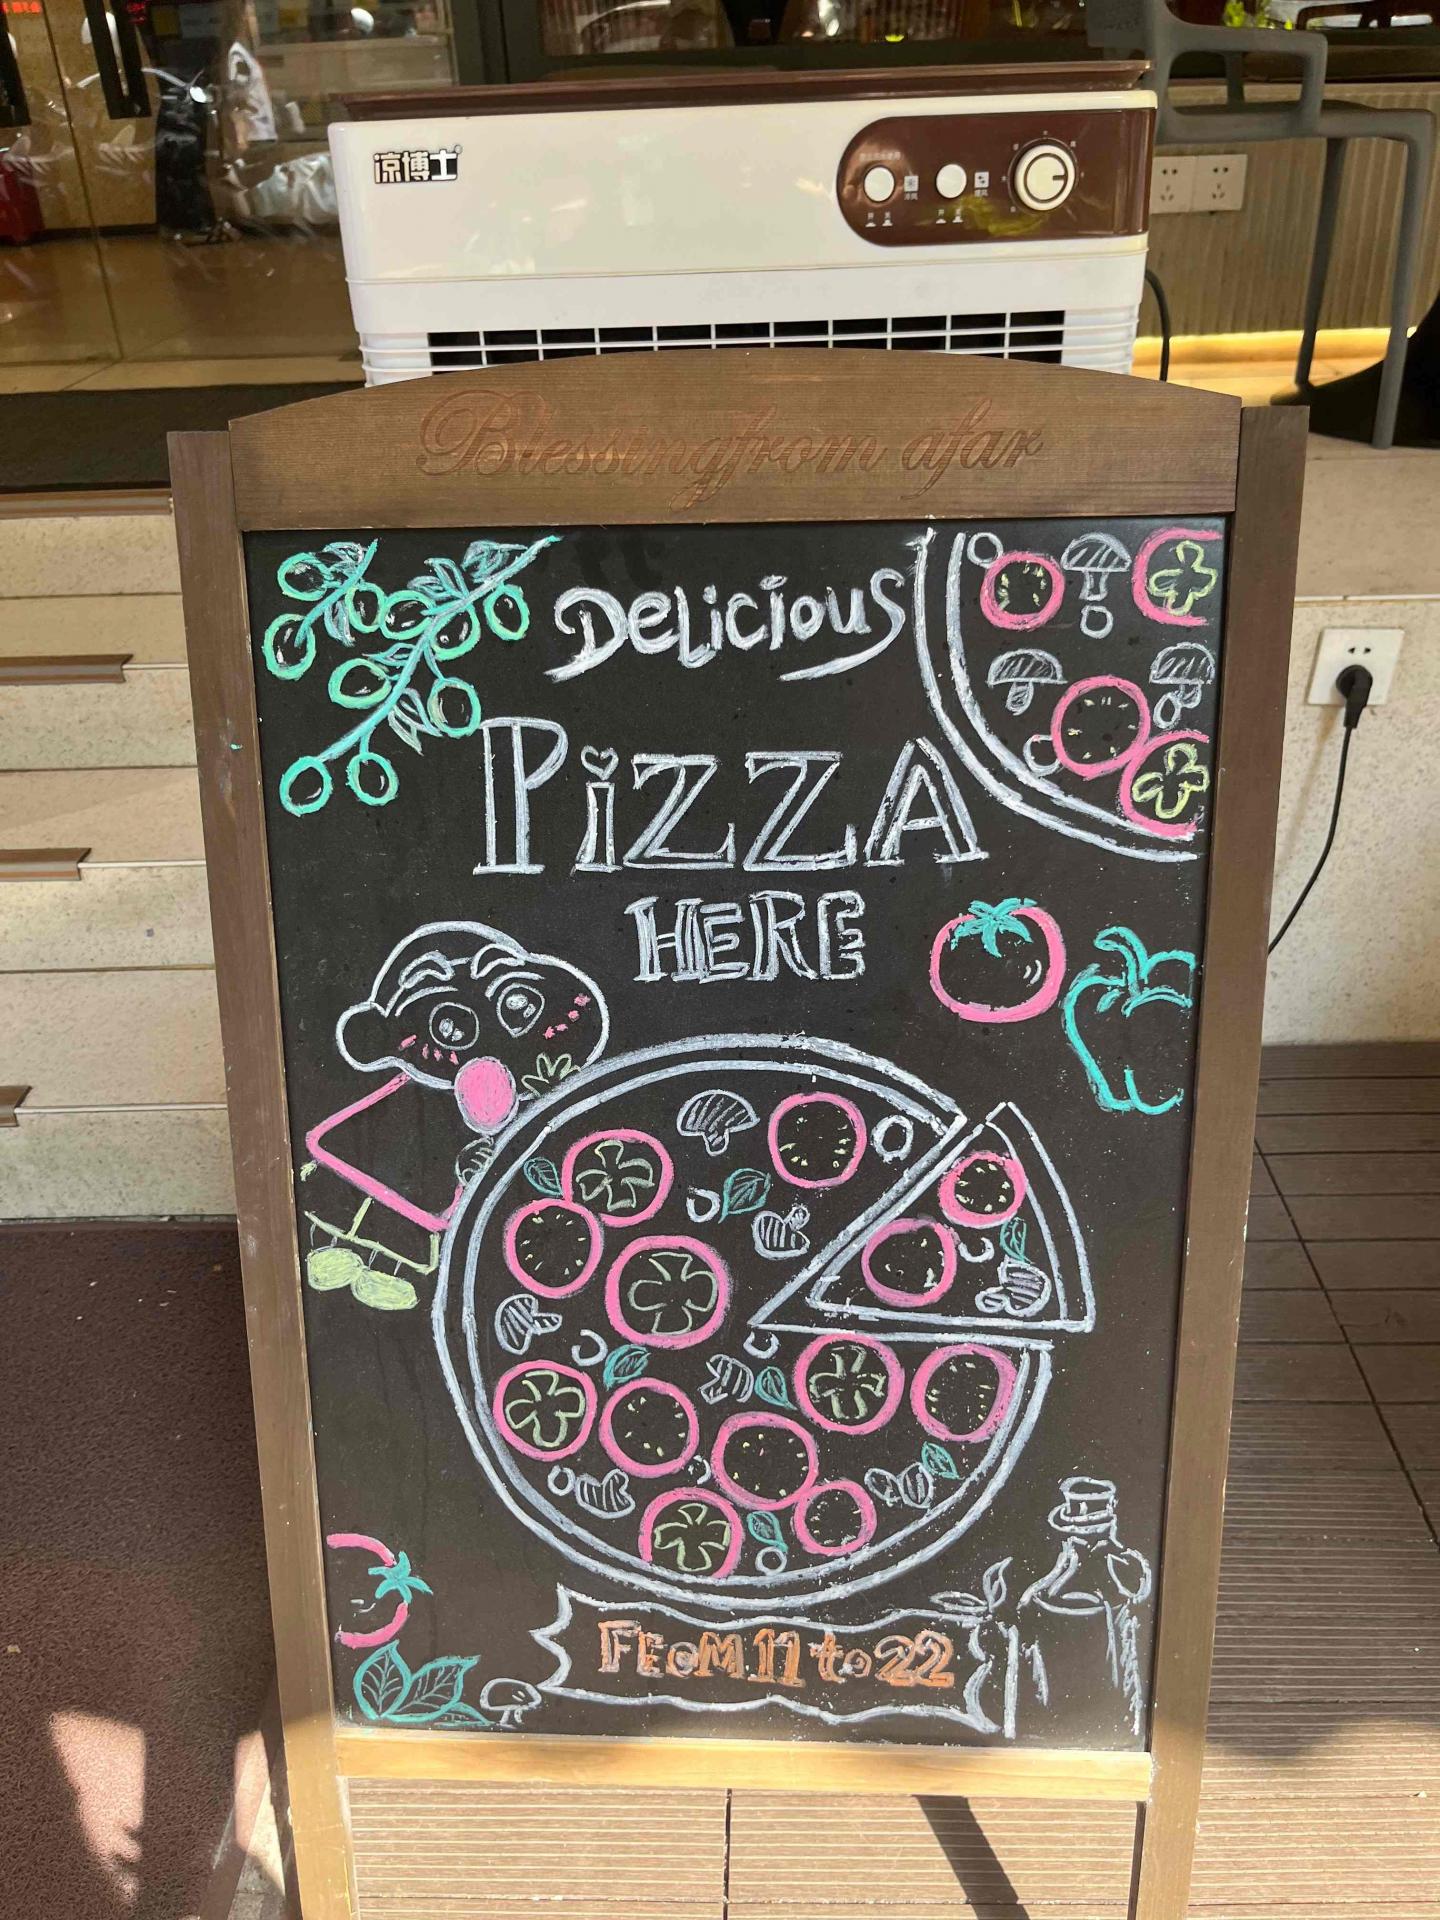 凉博士
冷风
暖风
开 关
开 关
Blessing from afar
DeLicious
PiZZA
HERE
FROM 11 to 22